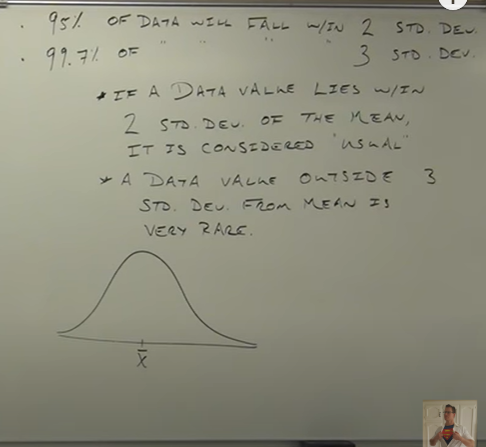 . 95% OF DATA WILL FALL W/IN 2 STD. DEV.
. 99.7% OF " " " " 3 STD. DEV.
* IF A DATA VALUE LIES W/IN
2 STD. DEV. OF THE MEAN,
IT IS CONSIDERED "USUAL"
* A DATA VALUE OUTSIDE 3
STD. DEV. FROM MEAN IS
VERY RARE.
x̄